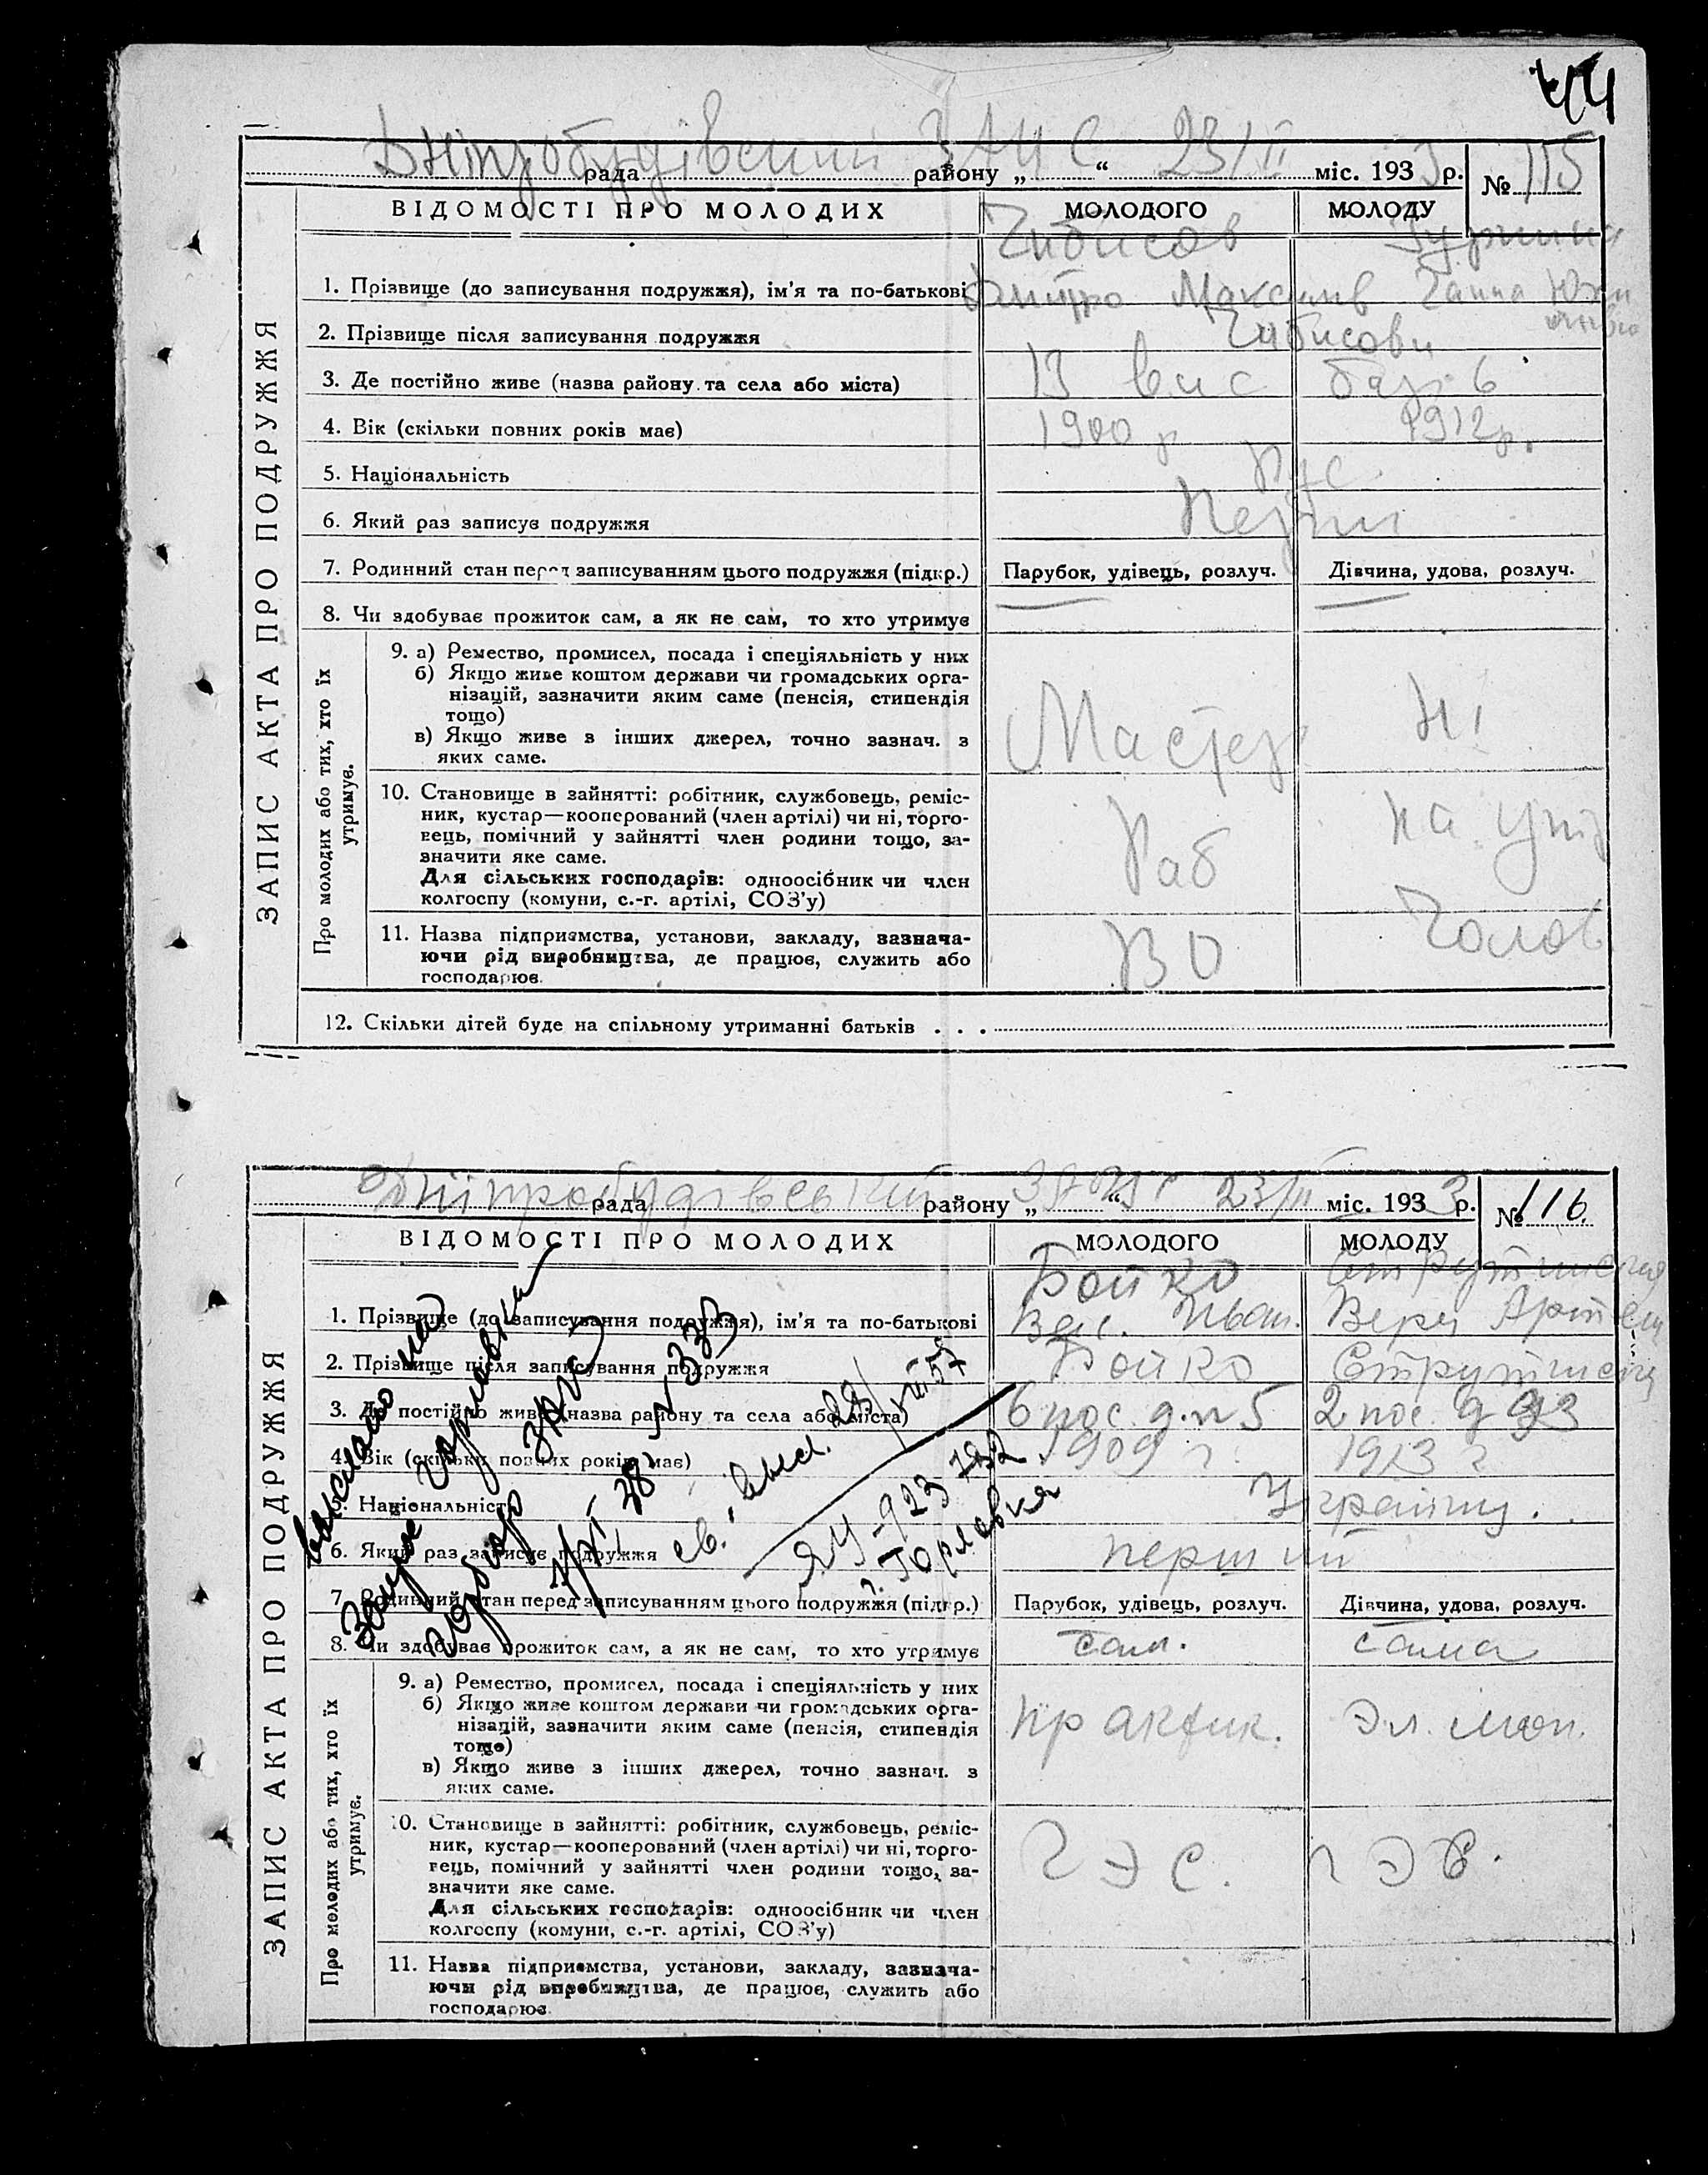 44
Дніпробудівський ЗАГС 23/II
рада району „ “ міс. 1933 р. № 115
ВІДОМОСТІ ПРО МОЛОДИХ МОЛОДОГО МОЛОДУ
Чибисов
1. Прізвище (до записування подружжя), ім'я та по-батькові Дмитро Максимів Ганна
2. Прізвище після записування подружжя Чибисови
3. Де постійно живе (назва району та села або міста) 13 вис бар 6
4. Вік (скільки повних років має) 1900 р 1912 р.
5. Національність Рус
6. Який раз записує подружжя
7. Родинний стан перед записуванням цього подружжя (підкр.) Парубок, удівець, розлуч. Дівчина, удова, розлуч.
8. Чи здобуває прожиток сам, а як не сам, то хто утримує
9. а) Ремество, промисел, посада і спеціяльність у них
б) Якщо живе коштом держави чи громадських орга-
нізацій, зазначити яким саме (пенсія, стипендія
тощо)
в) Якщо живе з інших джерел, точно зазнач. з
яких саме.
Мастер Ні
10. Становище в зайнятті: робітник, службовець, реміс-
ник, кустар—кооперований (член артілі) чи ні, торго-
вець, помічний у зайнятті член родини тощо, за-
значити яке саме.
Для сільських господарів: одноосібник чи член
колгоспу (комуни, с.-г. артілі, СОЗ'у)
Раб на утр
11. Назва підприємства, установи, закладу, зазнача-
ючи рід виробництва, де працює, служить або
господарює.
ВО Чолов
12. Скільки дітей буде на спільному утриманні батьків . . .
ЗАПИС АКТА ПРО ПОДРУЖЖЯ
Про молодих або тих, хто їх
утримує.
Дніпробудівський ЗАГС 23/II
рада району „ “ міс. 1933 р. № 116.
ВІДОМОСТІ ПРО МОЛОДИХ МОЛОДОГО МОЛОДУ
Бойко
1. Прізвище (до записування подружжя), ім'я та по-батькові Вас. Иван. Вера Артем
2. Прізвище після записування подружжя Бойко
3. Де постійно живе (назва району та села або міста) 6 пос. д. n 5 2 пос. д
4. Вік (скільки повних років має) 1909 г. 1913 г
5. Національність
6. Який раз записує подружжя перший
7. Родинний стан перед записуванням цього подружжя (підкр.) Парубок, удівець, розлуч. Дівчина, удова, розлуч.
8. Чи здобуває прожиток сам, а як не сам, то хто утримує сам. сама
9. а) Ремество, промисел, посада і спеціяльність у них
б) Якщо живе коштом держави чи громадських орга-
нізацій, зазначити яким саме (пенсія, стипендія
тощо)
в) Якщо живе з інших джерел, точно зазнач. з
яких саме.
практик. Эл. мон.
10. Становище в зайнятті: робітник, службовець, реміс-
ник, кустар—кооперований (член артілі) чи ні, торго-
вець, помічний у зайнятті член родини тощо, за-
значити яке саме.
Для сільських господарів: одноосібник чи член
колгоспу (комуни, с.-г. артілі, СОЗ'у)
ГЭС. ГЭС.
11. Назва підприємства, установи, закладу, зазнача-
ючи рід виробництва, де працює, служить або
господарює.
ЗАПИС АКТА ПРО ПОДРУЖЖЯ
Про молодих або тих, хто їх
утримує.
выслано на
запрос Горловки
ЗАГС
ЯЧ-923792
г. Горловка